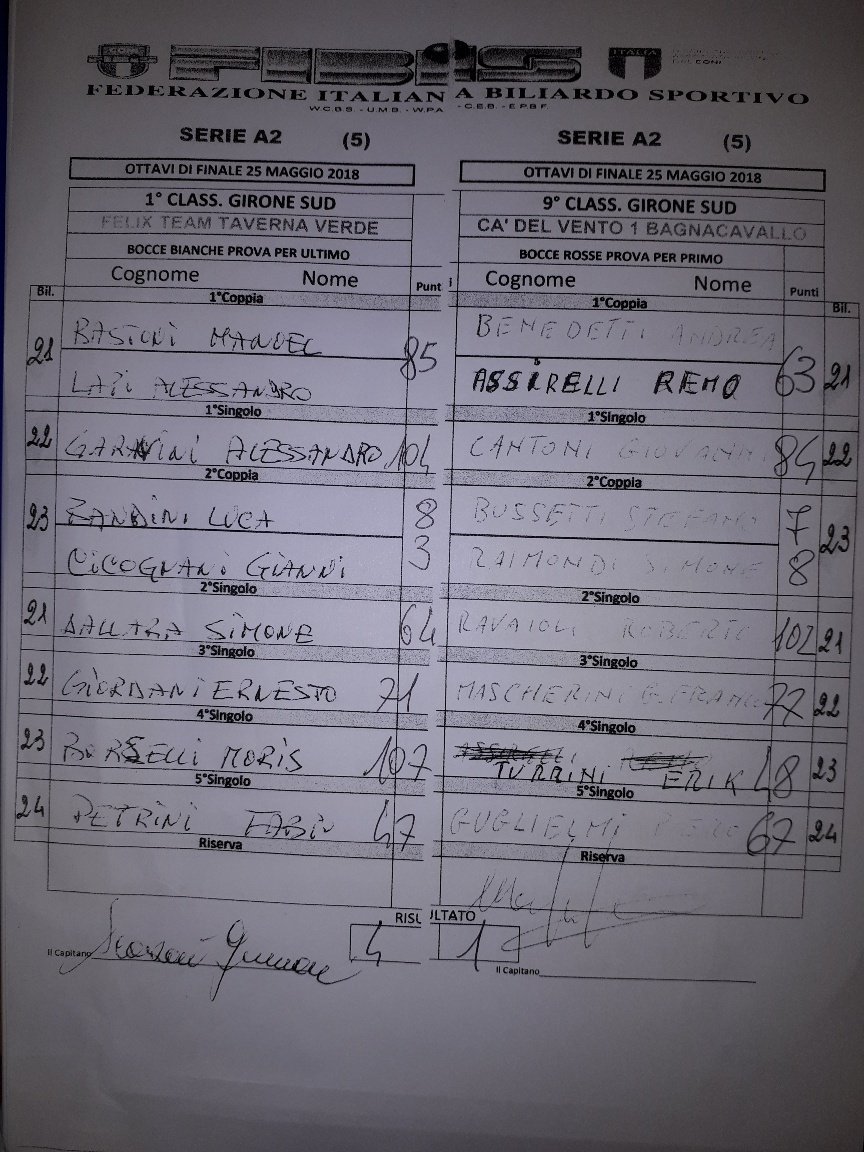 CONI
FIBIS
ITALIA
CONI
FEDERAZIONE ITALIANA BILIARDO SPORTIVO
W.C.B.S. - U.M.B. - W.P.A. - C.E.B. - E.P.B.F.
SERIE A2 (5)
OTTAVI DI FINALE 25 MAGGIO 2018
1° CLASS. GIRONE SUD
FELIX TEAM TAVERNA VERDE
BOCCE BIANCHE PROVA PER ULTIMO
Cognome Nome Punt
Bil. 1°Coppia
21 BASTONI MANUEL 85
LAPI ALESSANDRO
1°Singolo
22 GARAVINI ALESSANDRO 104
2°Coppia
23 ZANDINI LUCA 8
CICOGNANI GIANNI 3
2°Singolo
21 DALLARA SIMONE 64
3°Singolo
22 GIORDANI ERNESTO 71
4°Singolo
23 BORSELLI MORIS 107
5°Singolo
24 PETRINI FABIO 47
Riserva
RISULTATO
4
Il Capitano
SERIE A2 (5)
OTTAVI DI FINALE 25 MAGGIO 2018
9° CLASS. GIRONE SUD
CA' DEL VENTO 1 BAGNACAVALLO
BOCCE ROSSE PROVA PER PRIMO
i Cognome Nome Punti
1°Coppia Bil.
BENEDETTI ANDREA
ASSIRELLI REMO 63 21
1°Singolo
CANTONI GIOVANNI 84 22
2°Coppia
BUSSETTI STEFANO 7
RAIMONDI SIMONE 8 23
2°Singolo
RAVAIOLI ROBERTO 102 21
3°Singolo
MASCHERINI G.FRANCO 77 22
4°Singolo
TURRINI ERIK 48 23
5°Singolo
GUGLIELMI 67 24
Riserva
1
Il Capitano